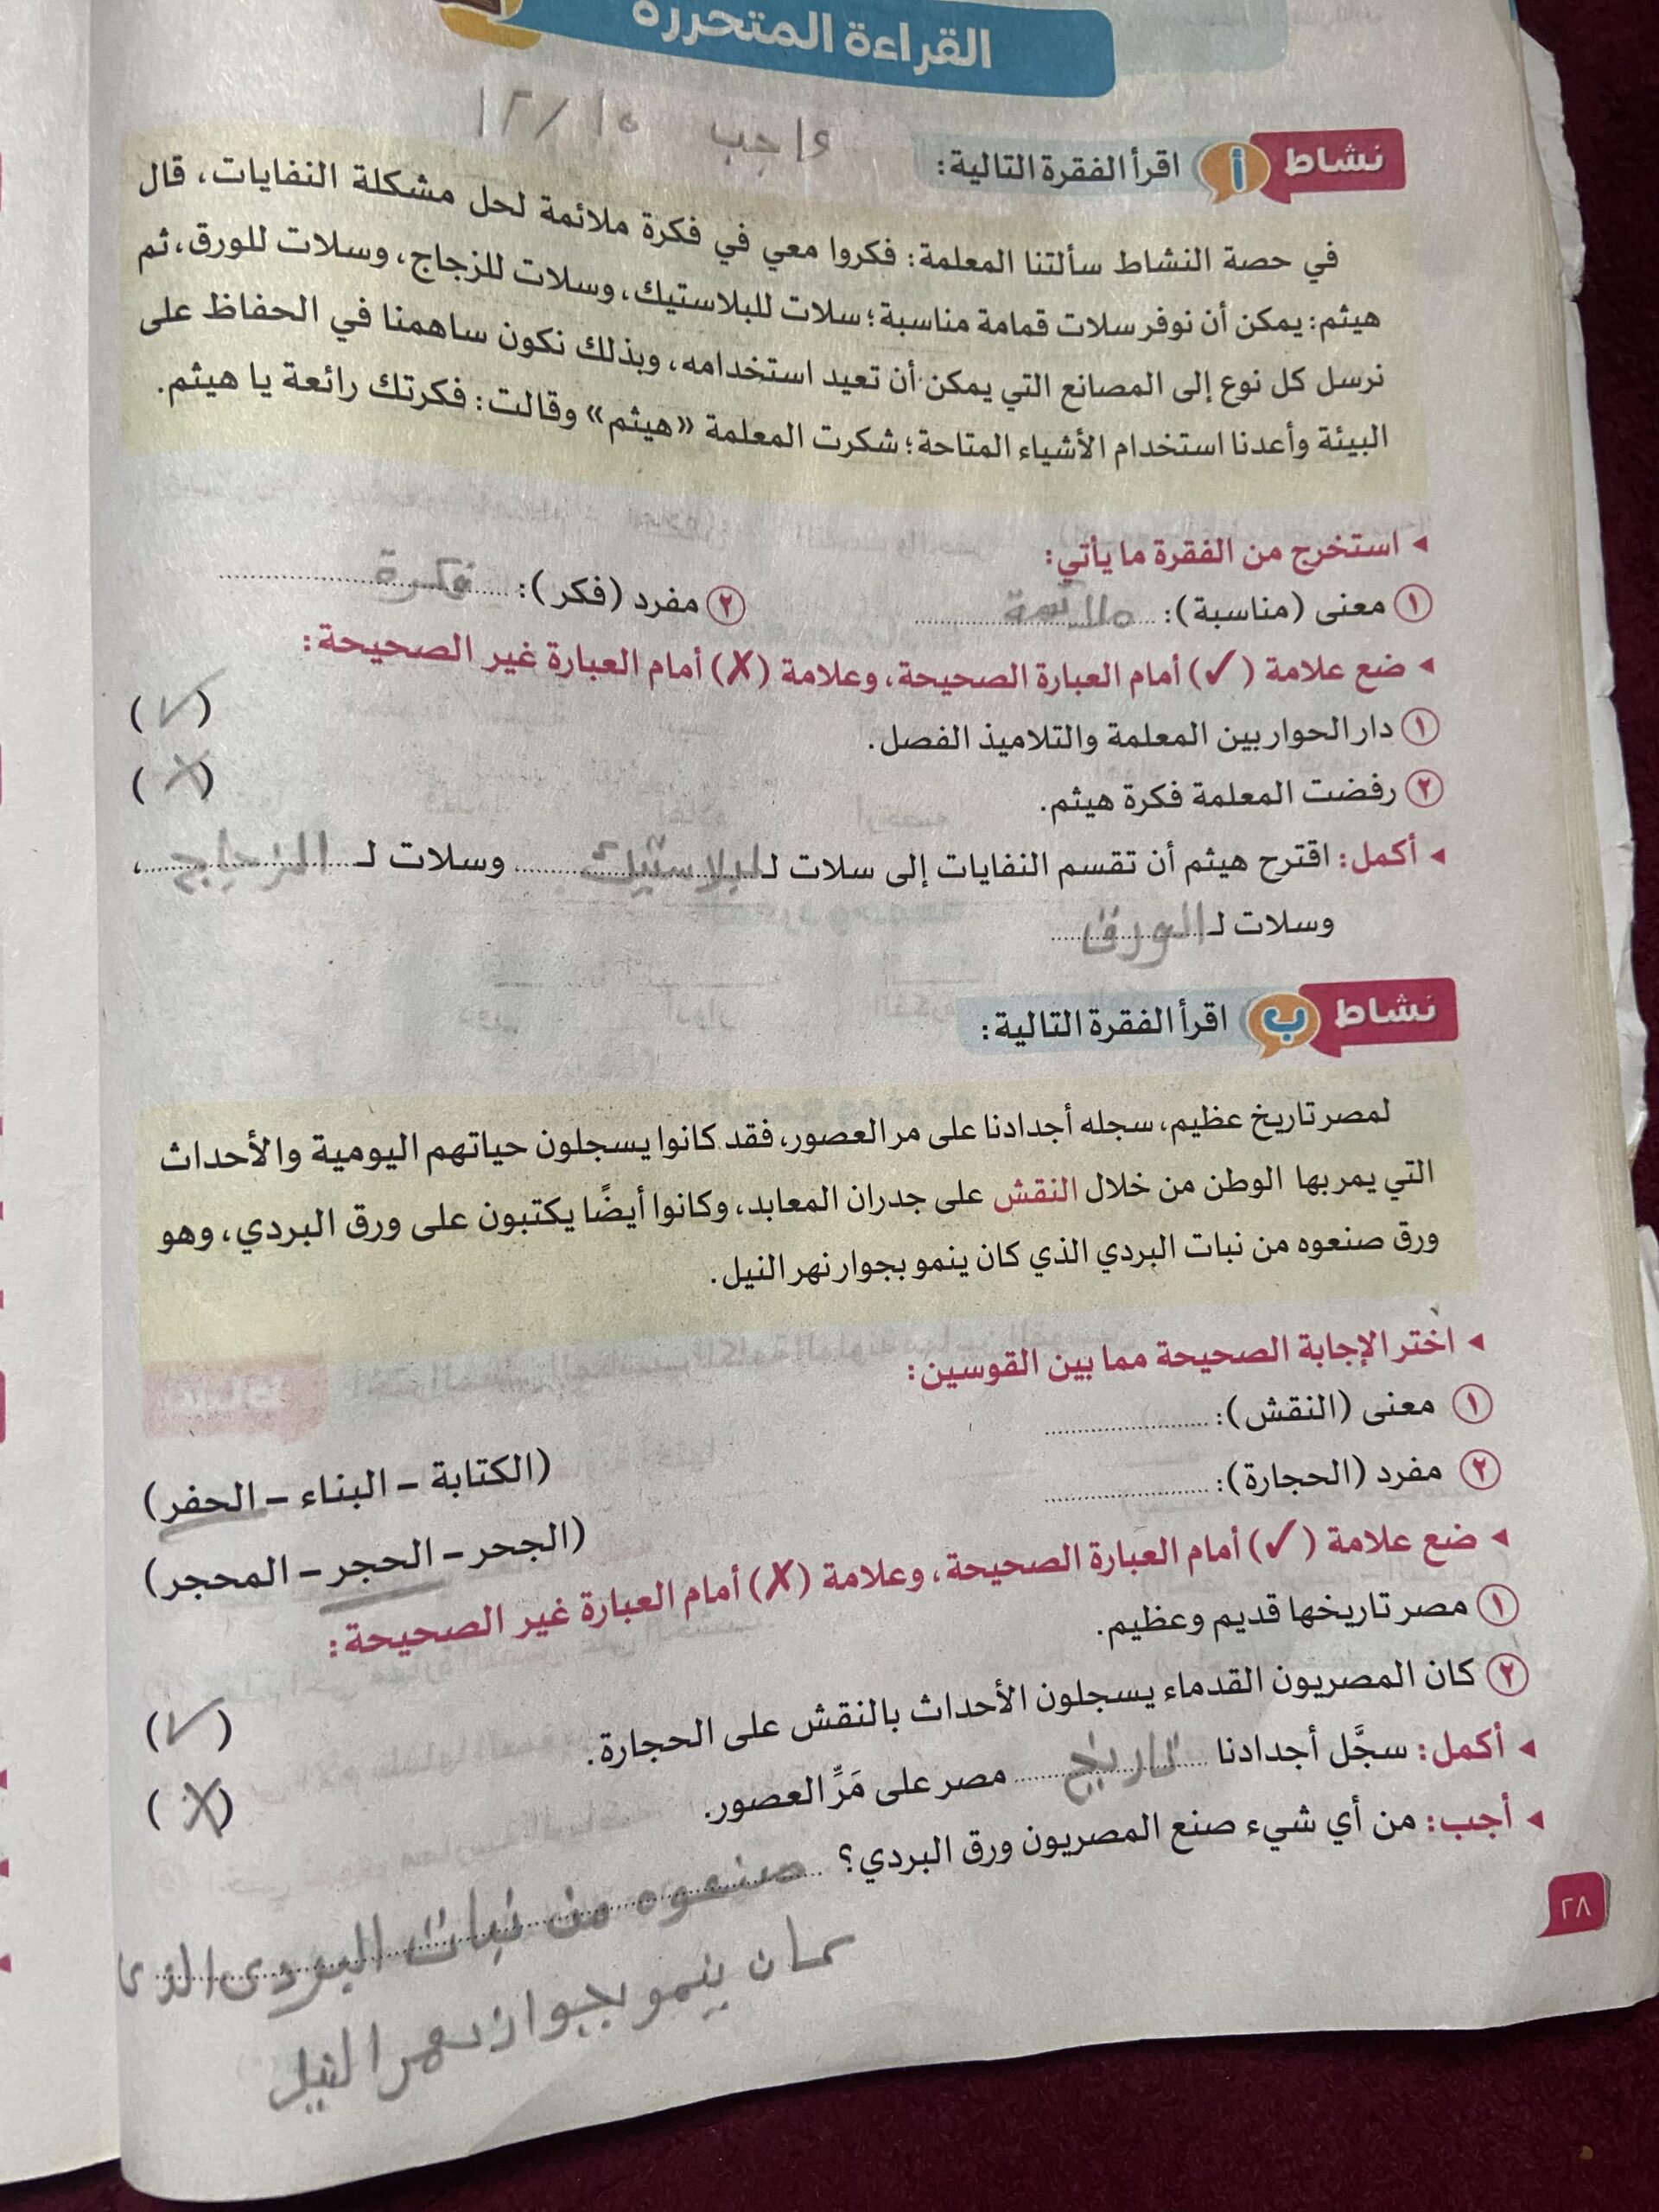 القراءة المتحررة
واجب ١٥ / ١٢
نشاط أ اقرأ الفقرة التالية:
في حصة النشاط سألتنا المعلمة: فكروا معي في فكرة ملائمة لحل مشكلة النفايات، قال
هيثم: يمكن أن نوفر سلات قمامة مناسبة؛ سلات للبلاستيك، وسلات للزجاج، وسلات للورق، ثم
نرسل كل نوع إلى المصانع التي يمكن أن تعيد استخدامه، وبذلك نكون ساهمنا في الحفاظ على
البيئة وأعدنا استخدام الأشياء المتاحة؛ شكرت المعلمة «هيثم» وقالت: فكرتك رائعة يا هيثم.
استخرج من الفقرة ما يأتي:
١ معنى (مناسبة): ملائمة ٢ مفرد (فكر): فكرة
ضع علامة (✓) أمام العبارة الصحيحة، وعلامة (✗) أمام العبارة غير الصحيحة:
١ دار الحوار بين المعلمة والتلاميذ الفصل. (✓)
٢ رفضت المعلمة فكرة هيثم. (✗)
أكمل: اقترح هيثم أن تقسم النفايات إلى سلات لـ لبلاستيك وسلات لـ الزجاج،
وسلات لـ الورق
نشاط ب اقرأ الفقرة التالية:
لمصر تاريخ عظيم، سجله أجدادنا على مر العصور، فقد كانوا يسجلون حياتهم اليومية والأحداث
التي يمر بها الوطن من خلال النقش على جدران المعابد، وكانوا أيضًا يكتبون على ورق البردي، وهو
ورق صنعوه من نبات البردي الذي كان ينمو بجوار نهر النيل.
اختر الإجابة الصحيحة مما بين القوسين:
١ معنى (النقش): (الكتابة – البناء – الحفر)
٢ مفرد (الحجارة): (الجحر – الحجر – المحجر)
ضع علامة (✓) أمام العبارة الصحيحة، وعلامة (✗) أمام العبارة غير الصحيحة:
١ مصر تاريخها قديم وعظيم. (✓)
٢ كان المصريون القدماء يسجلون الأحداث بالنقش على الحجارة. (✗)
أكمل: سجَّل أجدادنا تاريخ مصر على مَرِّ العصور.
أجب: من أي شيء صنع المصريون ورق البردي؟ صنعوه من نبات البردى الذى
كان ينمو بجوار نهر النيل
٢٨